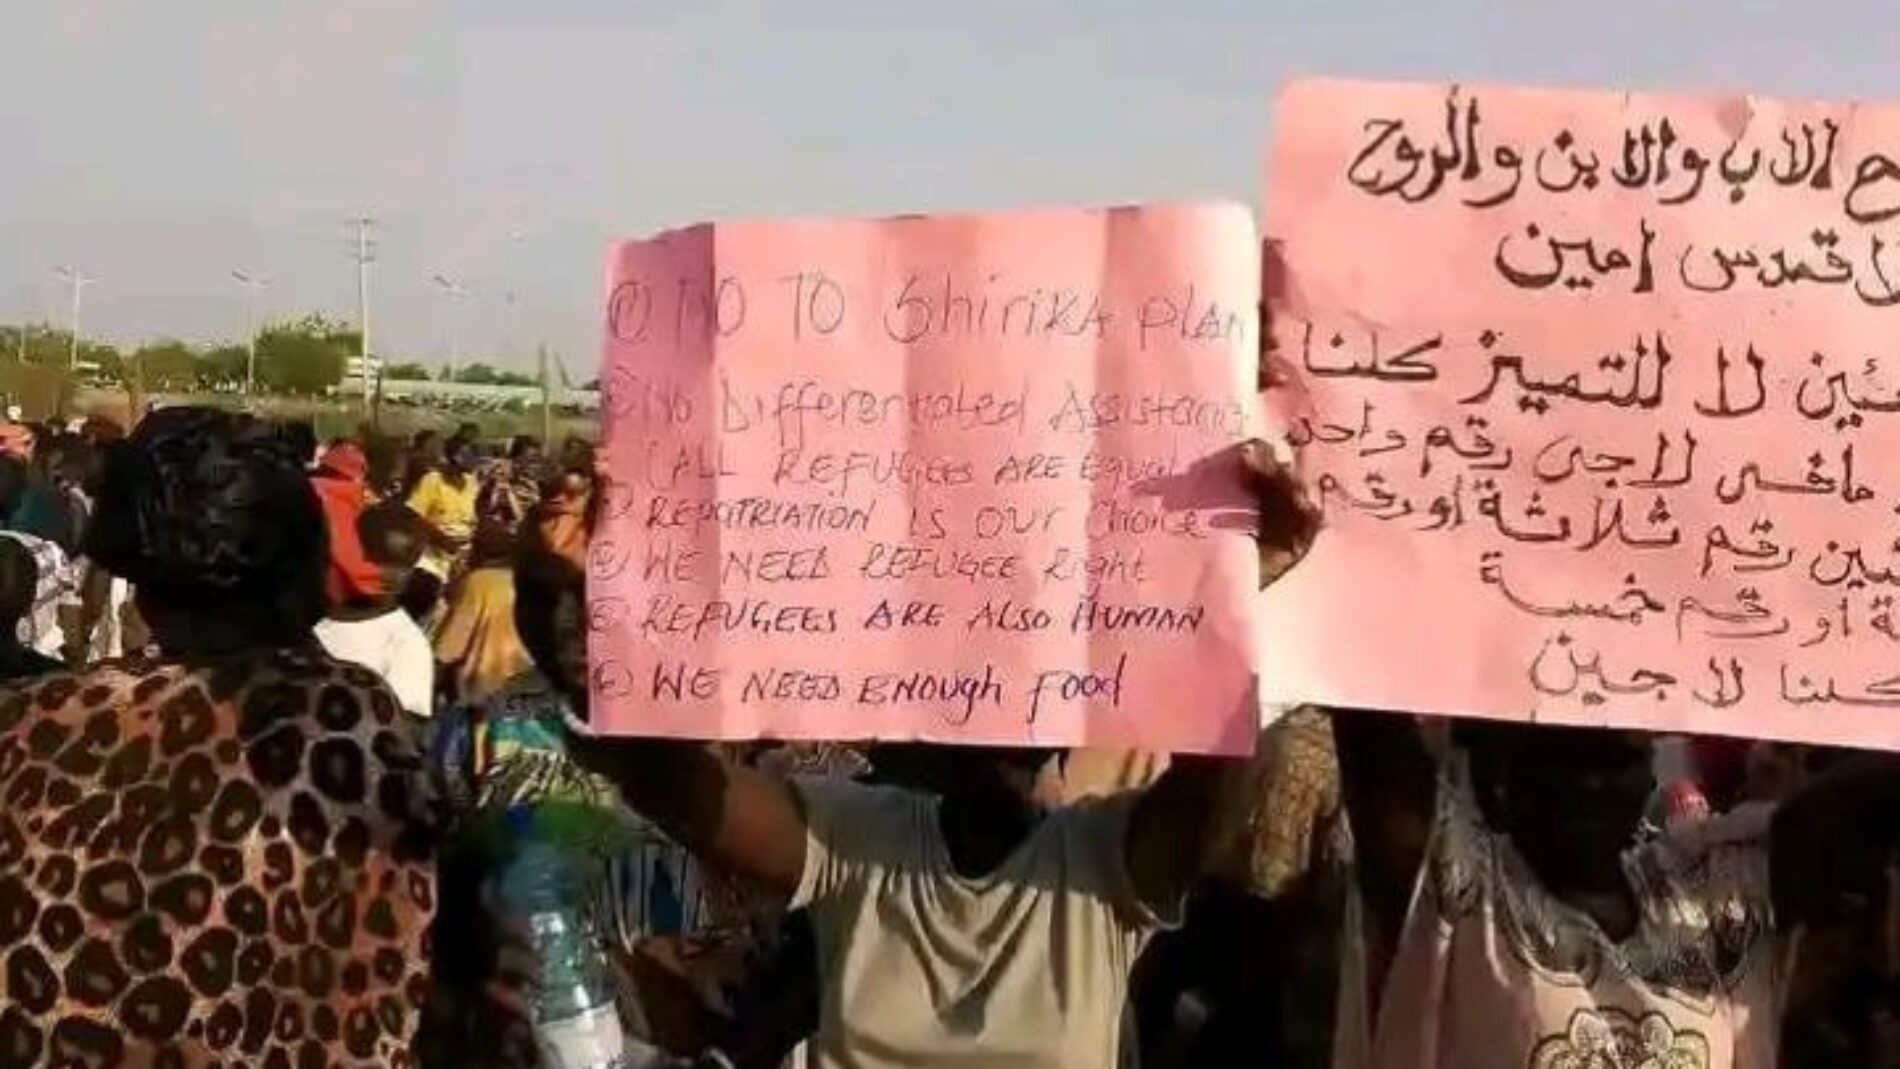 ① NO TO Shirika plan
② No Differentated Assistance
(ALL REFUGEES ARE Equal
REPATRIATION IS OUR Choice
④ WE NEED REFUGEE Right
5 REFUGEES ARE ALSO HUMAN
⑥ WE NEED ENOUGH Food
الاب والابن والروح
القدس امين
لا للتمييز كلنا
مافى لاجى رقم واحد
رقم ثلاثة أو رقم
او رقم خمسة
كلنا لاجين